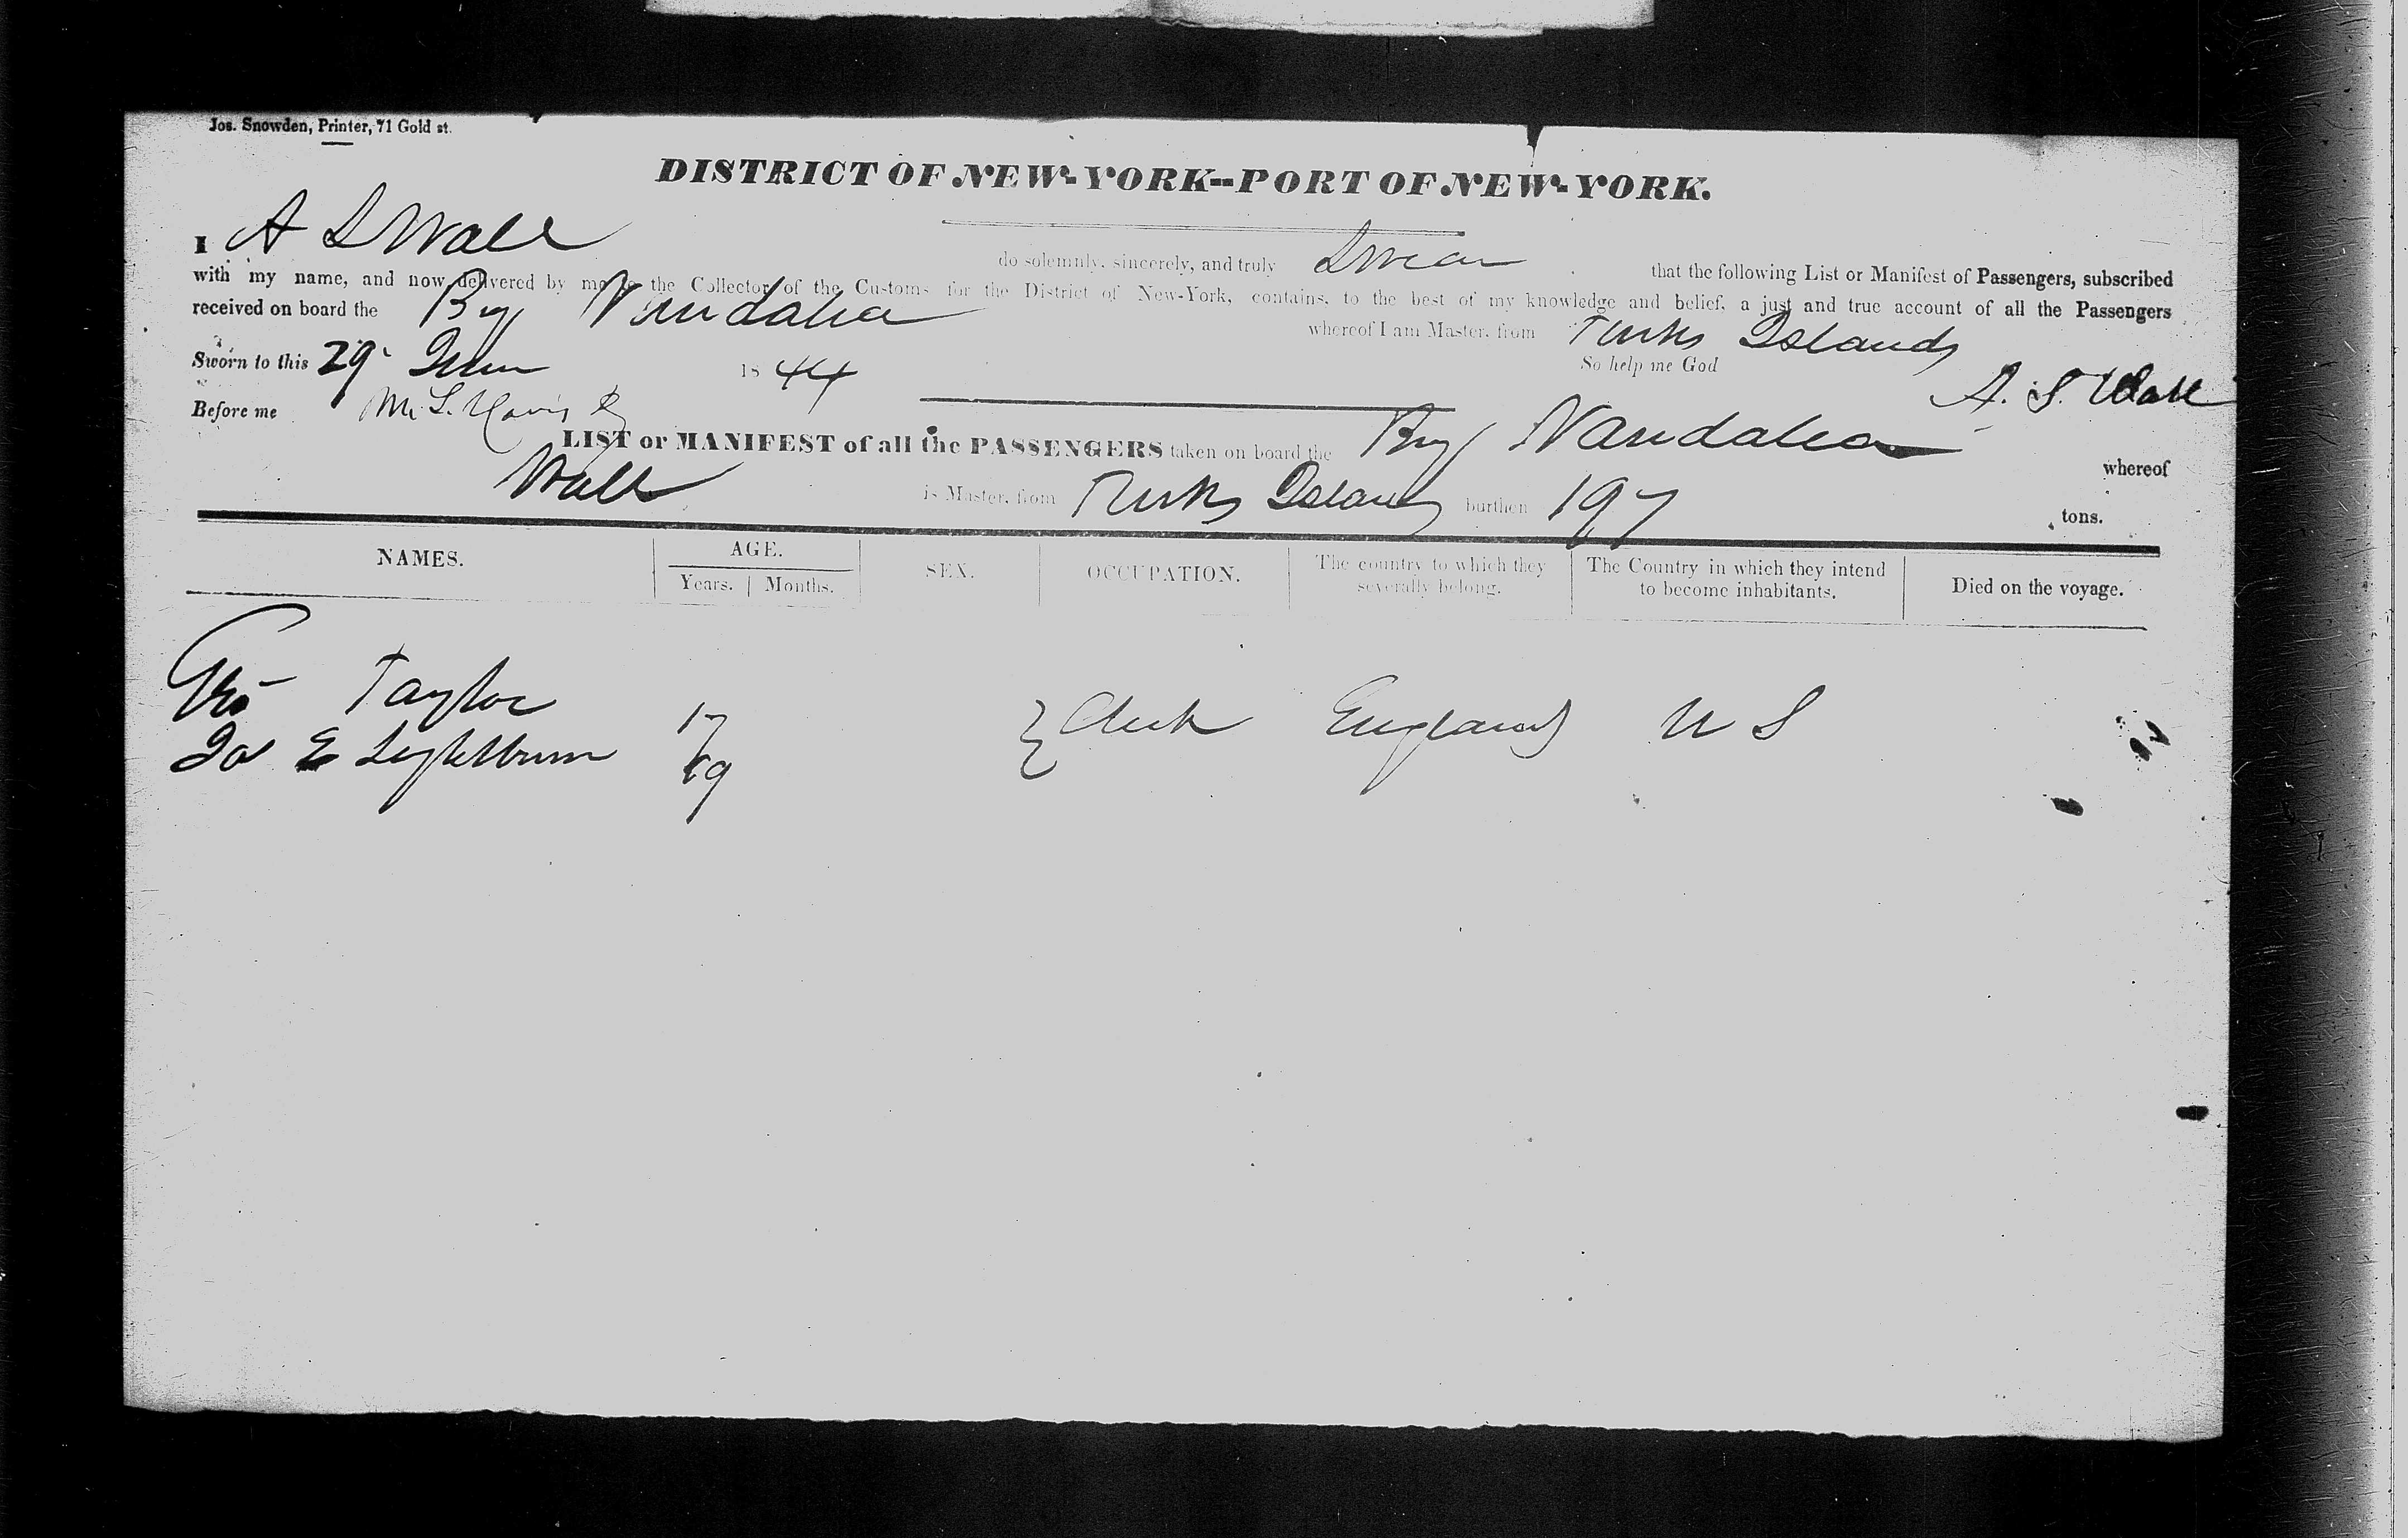 Jos. Snowden, Printer, 71 Gold st.
DISTRICT OF NEW-YORK--PORT OF NEW-YORK.
I A S Wall do solemnly, sincerely, and truly Swear that the following List or Manifest of Passengers, subscribed
with my name, and now delivered by me to the Collector of the Customs for the District of New-York, contains, to the best of my knowledge and belief, a just and true account of all the Passengers
received on board the Brig Vandalia whereof I am Master, from Turks Islands
Sworn to this 29 June 1844 So help me God
A. S. Wall
Before me
LIST or MANIFEST of all the PASSENGERS taken on board the Brig Vandalia whereof
Wall is Master, from Turks Island burthen 197 tons.
NAMES. AGE. SEX. OCCUPATION. The country to which they severally belong. The Country in which they intend to become inhabitants. Died on the voyage.
Years. Months.
Geo Taylor 17 } Clerk England U S
Jos E Lightbourn 19